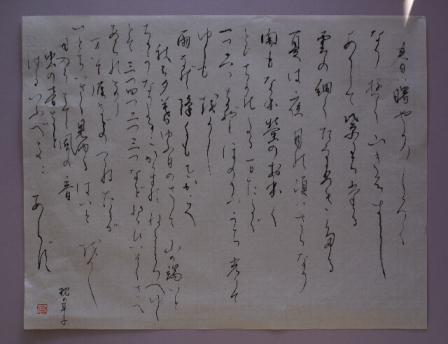 春は曙やうやうしろく
なり行く山ぎはすこし
あかりて紫だちたる
雲の細くたなびきたる
夏は夜月の頃はさらなり
闇もなほ螢のおほく
とびちがひたる又ただ
一つ二つなどほのかにうち光りて
ゆくもをかし
雨など降るもをかし
秋は夕暮夕日のさして山の端いと
ちかうなりたるにからすのねどころへゆく
とて三つ四つ二つ三つなどとびいそぐさへ
あはれなり
まいて雁などのつらねたるが
いとちひさく見ゆるはいとをかし
日入りはてて風の音
虫の音など
はたいふべきにあらず
枕草子